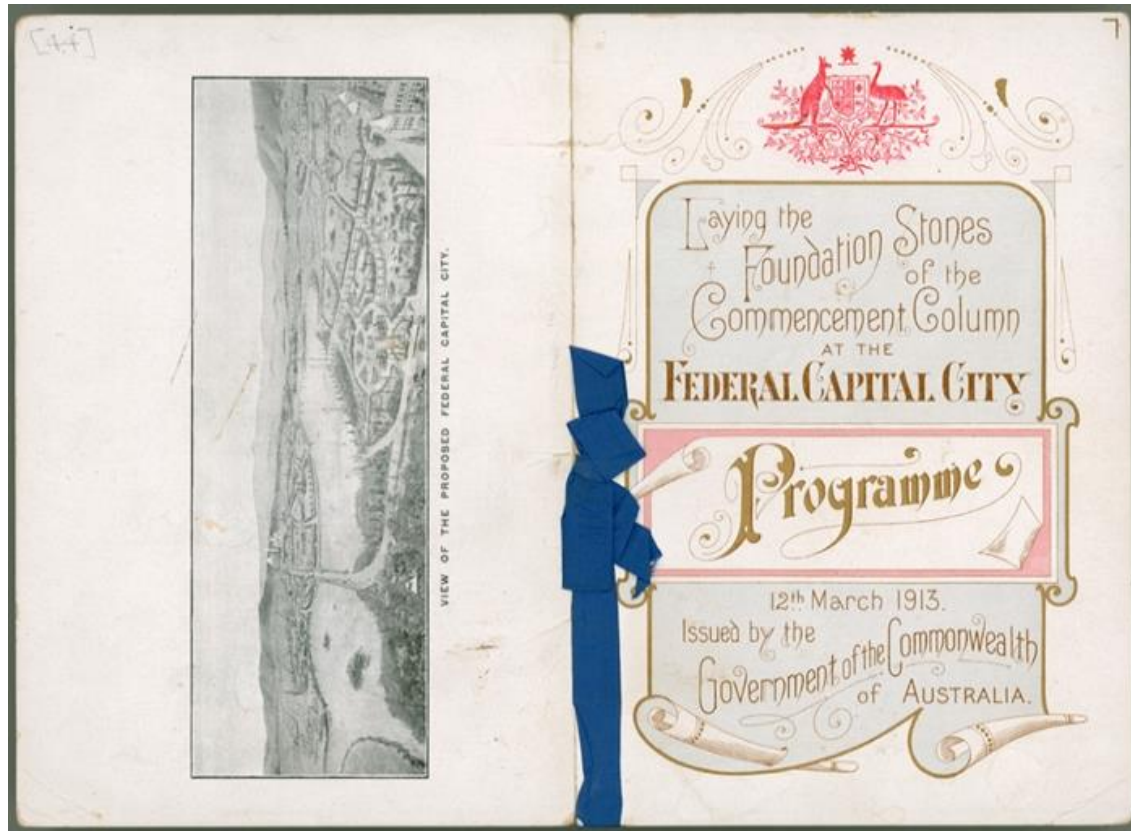 [44]
VIEW OF THE PROPOSED FEDERAL CAPITAL CITY.
Laying the
Foundation Stones
of the
Commencement Column
AT THE
FEDERAL CAPITAL CITY
Programme
12th March 1913.
Issued by the
Government of the Commonwealth
of AUSTRALIA.